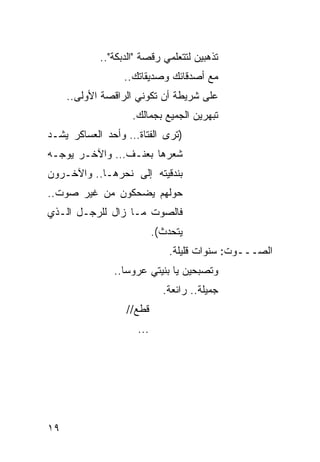 تذهبين لتتعلمي رقصة "الدبكة"..
مع أصدقائك وصديقاتك..
على شريطة أن تكوني الراقصة الأولى..
تبهرين الجميع بجمالك.
(ترى الفتاة... وأحد العساكر يشـد
شعرها بعنـف... والآخـر يوجـه
بندقيته إلى نحرهـا.. والآخـرون
حولهم يضحكون من غير صوت..
فالصوت مـا زال للرجـل الـذي
يتحدث).
الصـــوت: سنوات قليلة.
وتصبحين يا بنيتي عروسا..
جميلة.. رائعة.
قطع//
...
١٩